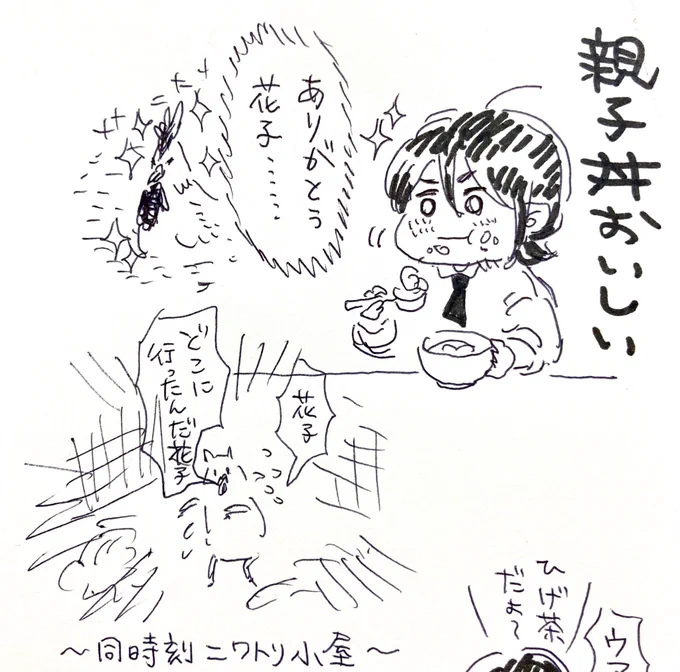 親子丼おいしい
ありがとう
花子……
花子
どこに
行ったんだ花子
～同時刻ニワトリ小屋～
ひげ茶
だよ～